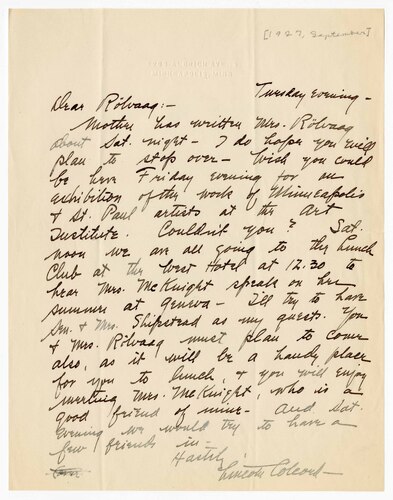 [1927, September]
Tuesday evening -
Dear Rölvaag:-
Mother has written Mrs. Rölvaag
about Sat. night - I do hope you will
plan to stop over - Wish you could
be here Friday evening for an
exhibition of the work of Minneapolis
& St. Paul artists at the Art
Institute. Couldn't you? Sat.
noon we are all going to the Lunch
Club at the West Hotel at 12.30 to
hear Mrs. McKnight speak on her
summer at Geneva - I'll try to have
Sen. & Mrs. Shipstead as my guests. You
& Mrs. Rölvaag must plan to come
also, as it will be a handy place
for you to lunch, & you will enjoy
meeting Mrs. McKnight, who is a
good friend of mine - And Sat.
evening we would try to have a
few friends in -
Hastily,
Lincoln Colcord -